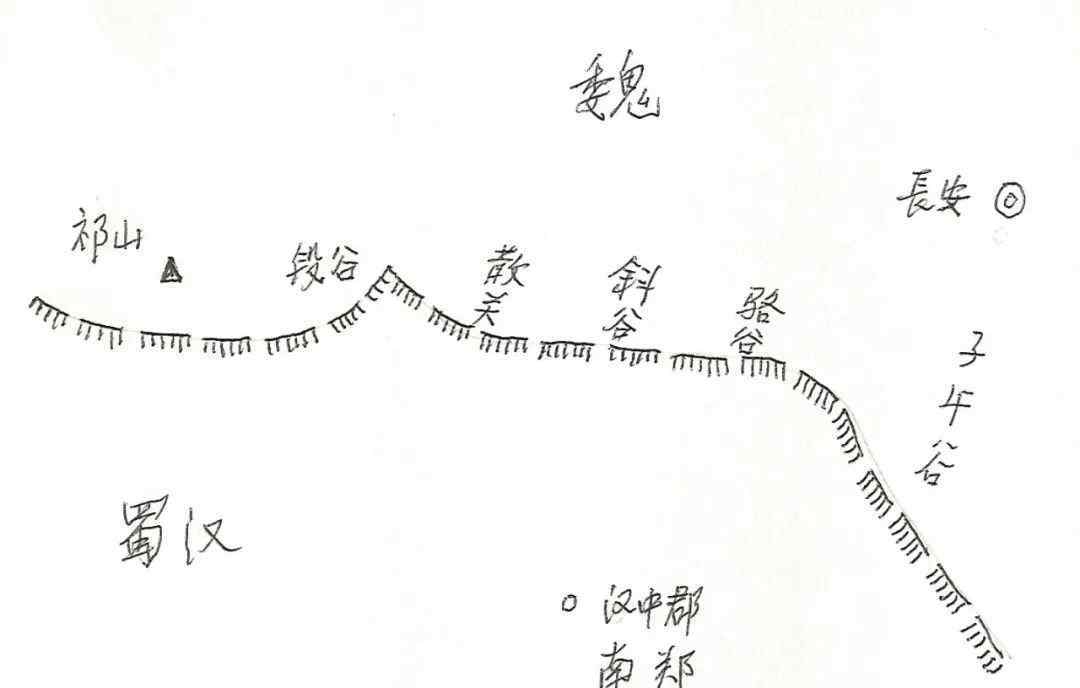 魏
長安
祁山
段谷
散关
斜谷
骆谷
子午谷
蜀汉
汉中郡
南郑